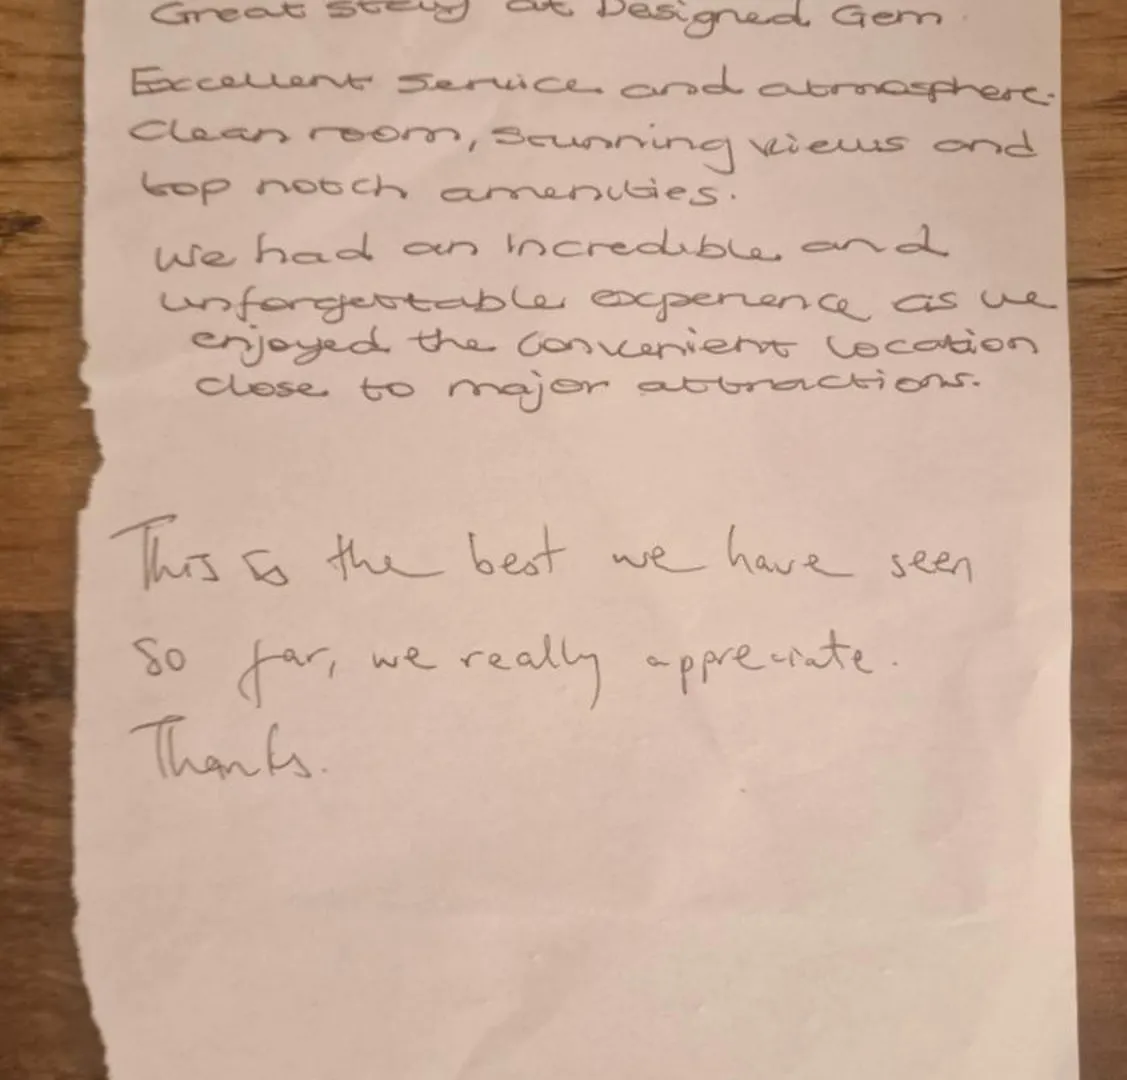 Great stay at Designed Gem.
Excellent service and atmosphere.
Clean room, stunning views and
top notch amenities.
We had an incredible and
unforgettable experience as we
enjoyed the convenient location
close to major attractions.
This is the best we have seen
so far, we really appreciate.
Thanks.